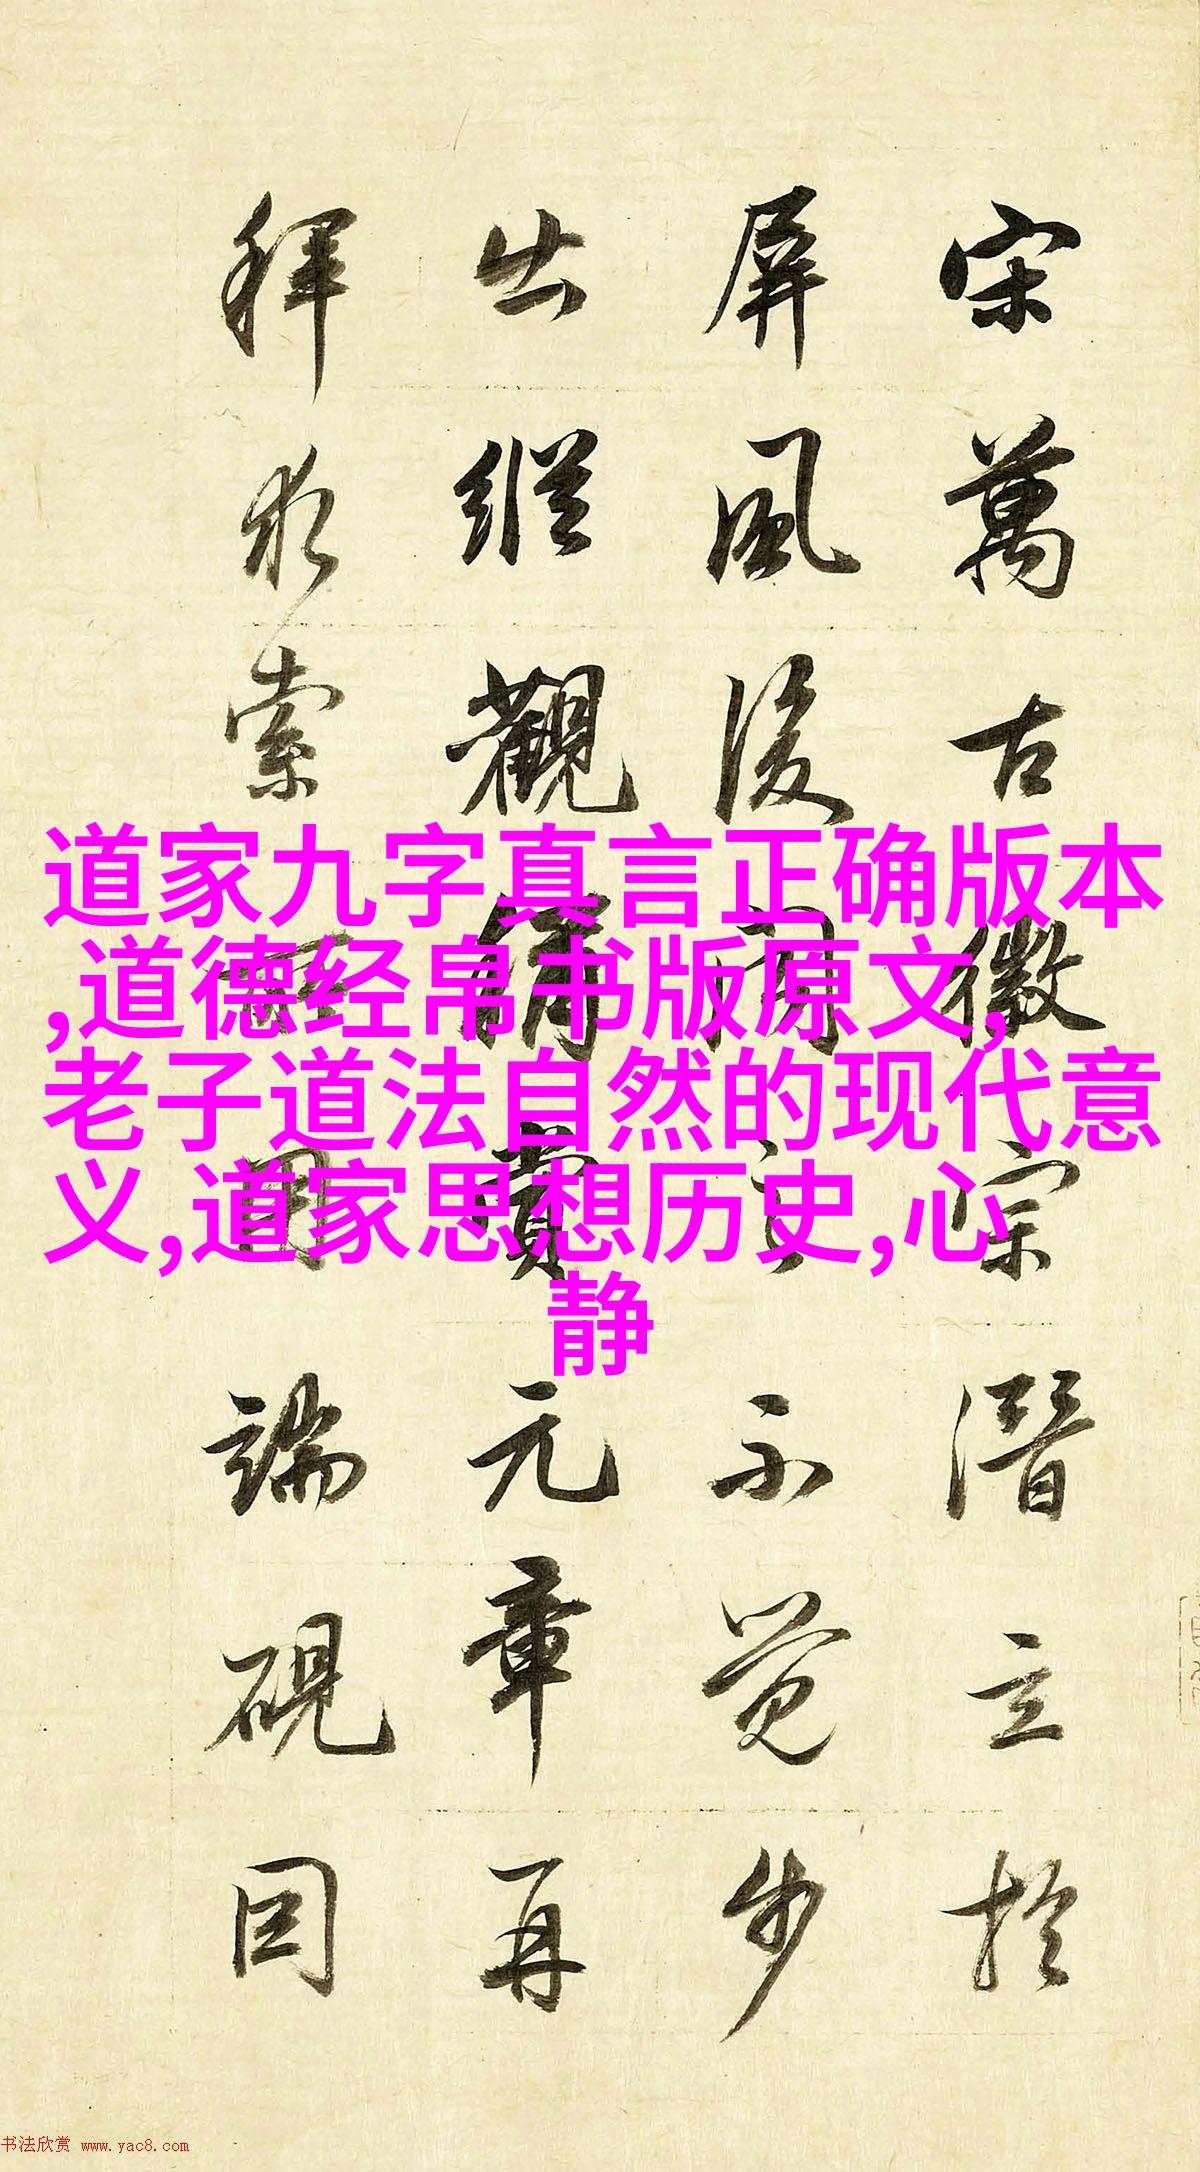 宋萬古徽宗潛立於
屏風後之不覺步
出縱觀賞元章再
拜求索用端硯因
道家九字真言正确版本
,道德经帛书版原文,
老子道法自然的现代意
义,道家思想历史,心
静
书法欣赏 www.yac8.com